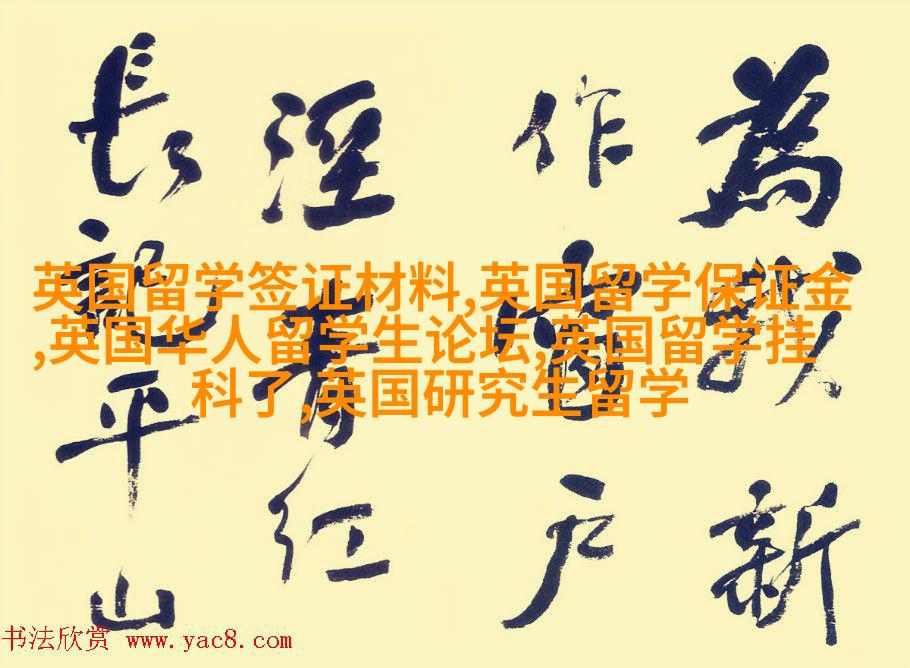 為我新
作户
红
長龍平山
英国留学签证材料,英国留学保证金
,英国华人留学生论坛,英国留学挂
科了,英国研究生留学
书法欣赏 www.yac8.com